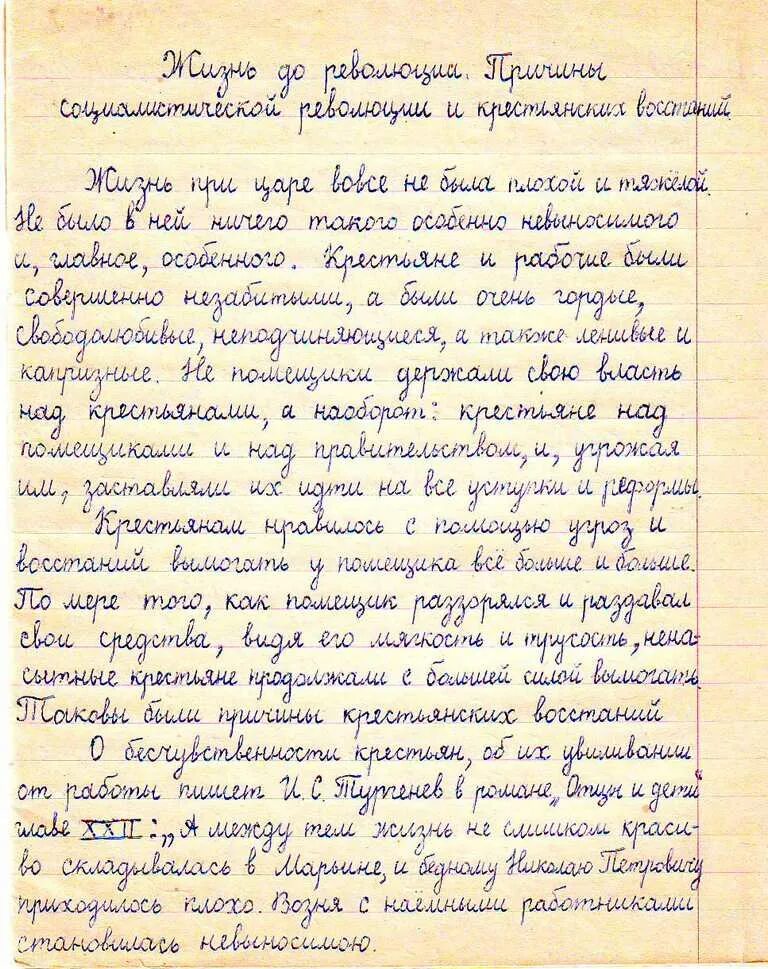 Жизнь до революции. Причины
социалистической революции и крестьянских восстаний.
Жизнь при царе вовсе не была плохой и тяжёлой.
Не было в ней ничего такого особенно невыносимого
и, главное, особенного. Крестьяне и рабочие были
совершенно незабитыми, а были очень гордые,
свободолюбивые, неподчиняющиеся, а также ленивые и
капризные. Не помещики держали свою власть
над крестьянами, а наоборот: крестьяне над
помещиками и над правительством, и, угрожая
им, заставляли их идти на все уступки и реформы.
Крестьянам нравилось с помощью угроз и
восстаний вымогать у помещика всё больше и больше.
По мере того, как помещик раззорялся и раздавал
свои средства, видя его мягкость и трусость, нена-
сытные крестьяне продолжали с большей силой вымогать.
Таковы были причины крестьянских восстаний
О бесчувственности крестьян, об их увиливании
от работы пишет И.С. Тургенев в романе „Отцы и дети"
главе XXII: „А между тем жизнь не слишком краси-
во складывалась в Марьине, и бедному Николаю Петровичу
приходилось плохо. Возня с наёмными работниками
становилась невыносимою.